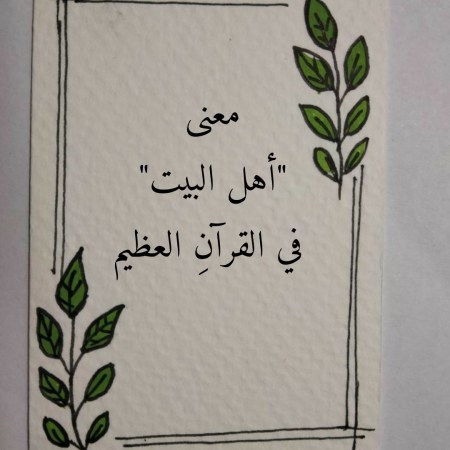 معنى
"أهل البيت"
في القرآنِ العظيم